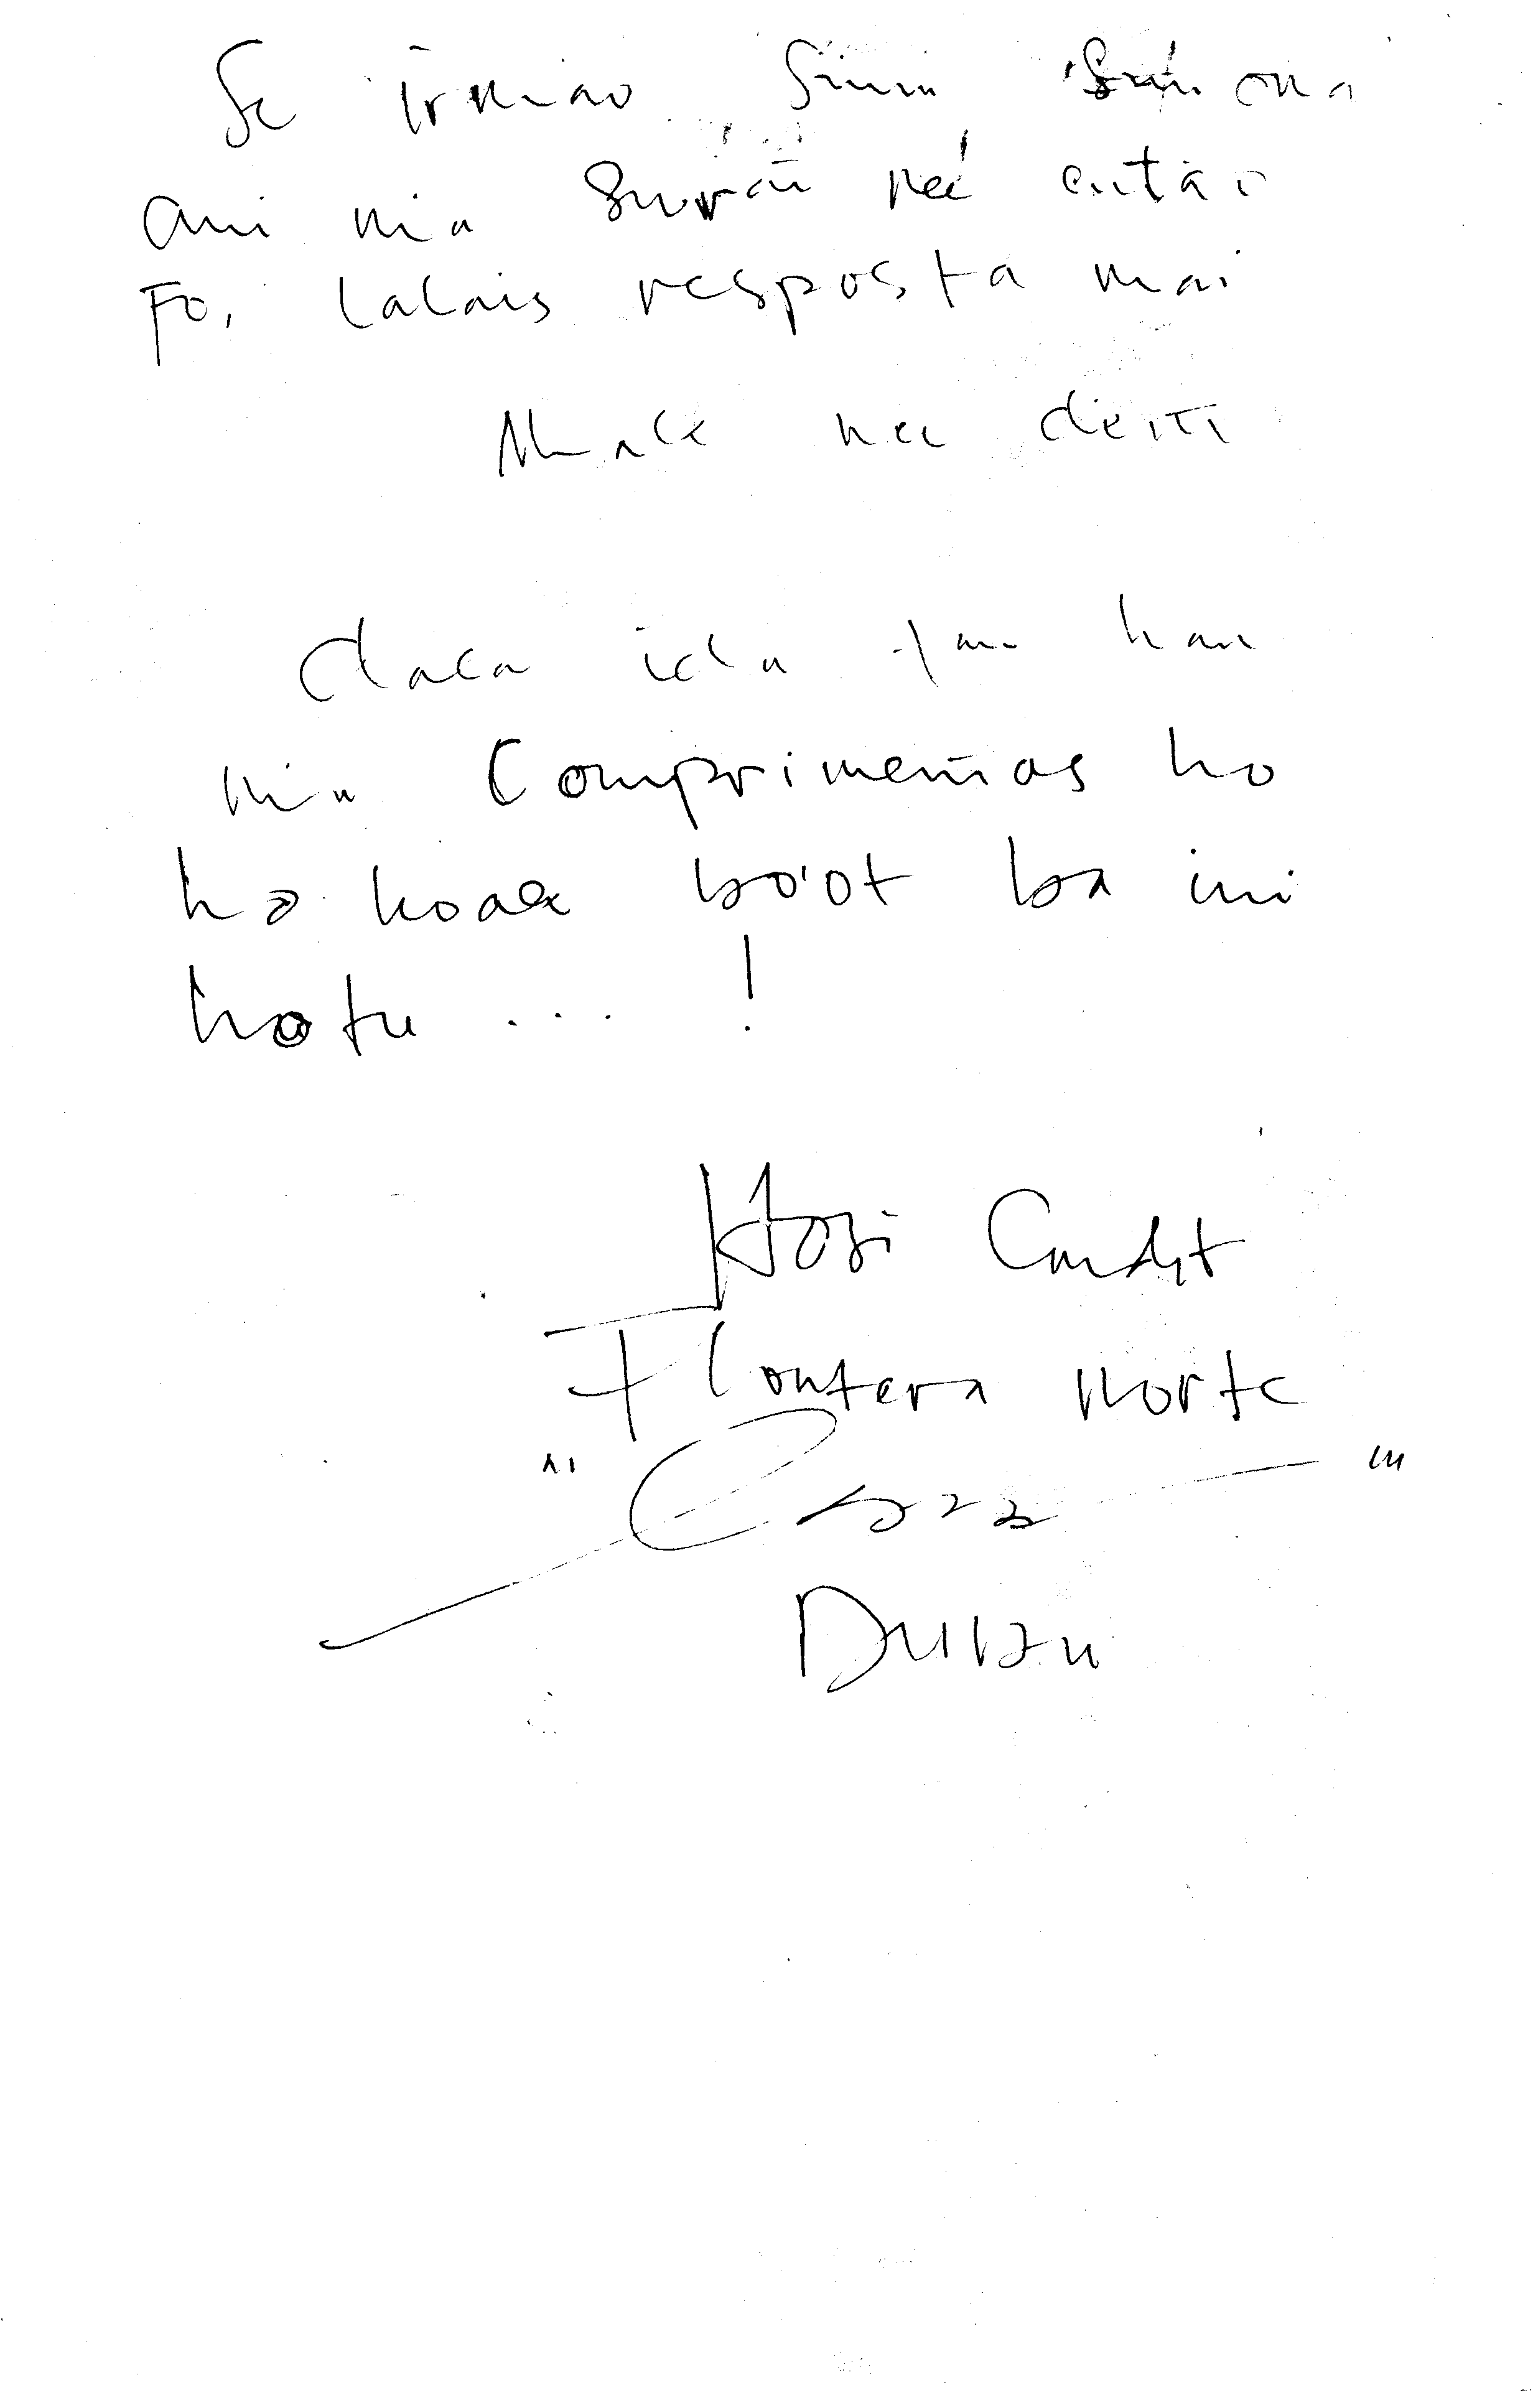 Se Irmiao Simu ona
ami nia Surat neé então
Fo, lalais resposta mai
Mak nee deiti
daca ida tan hau
nia Comprimentas ho
ho hoaek bo'ot ba imi
hotu ... !
Hosi Cmdt
Flontera norte
Dulau